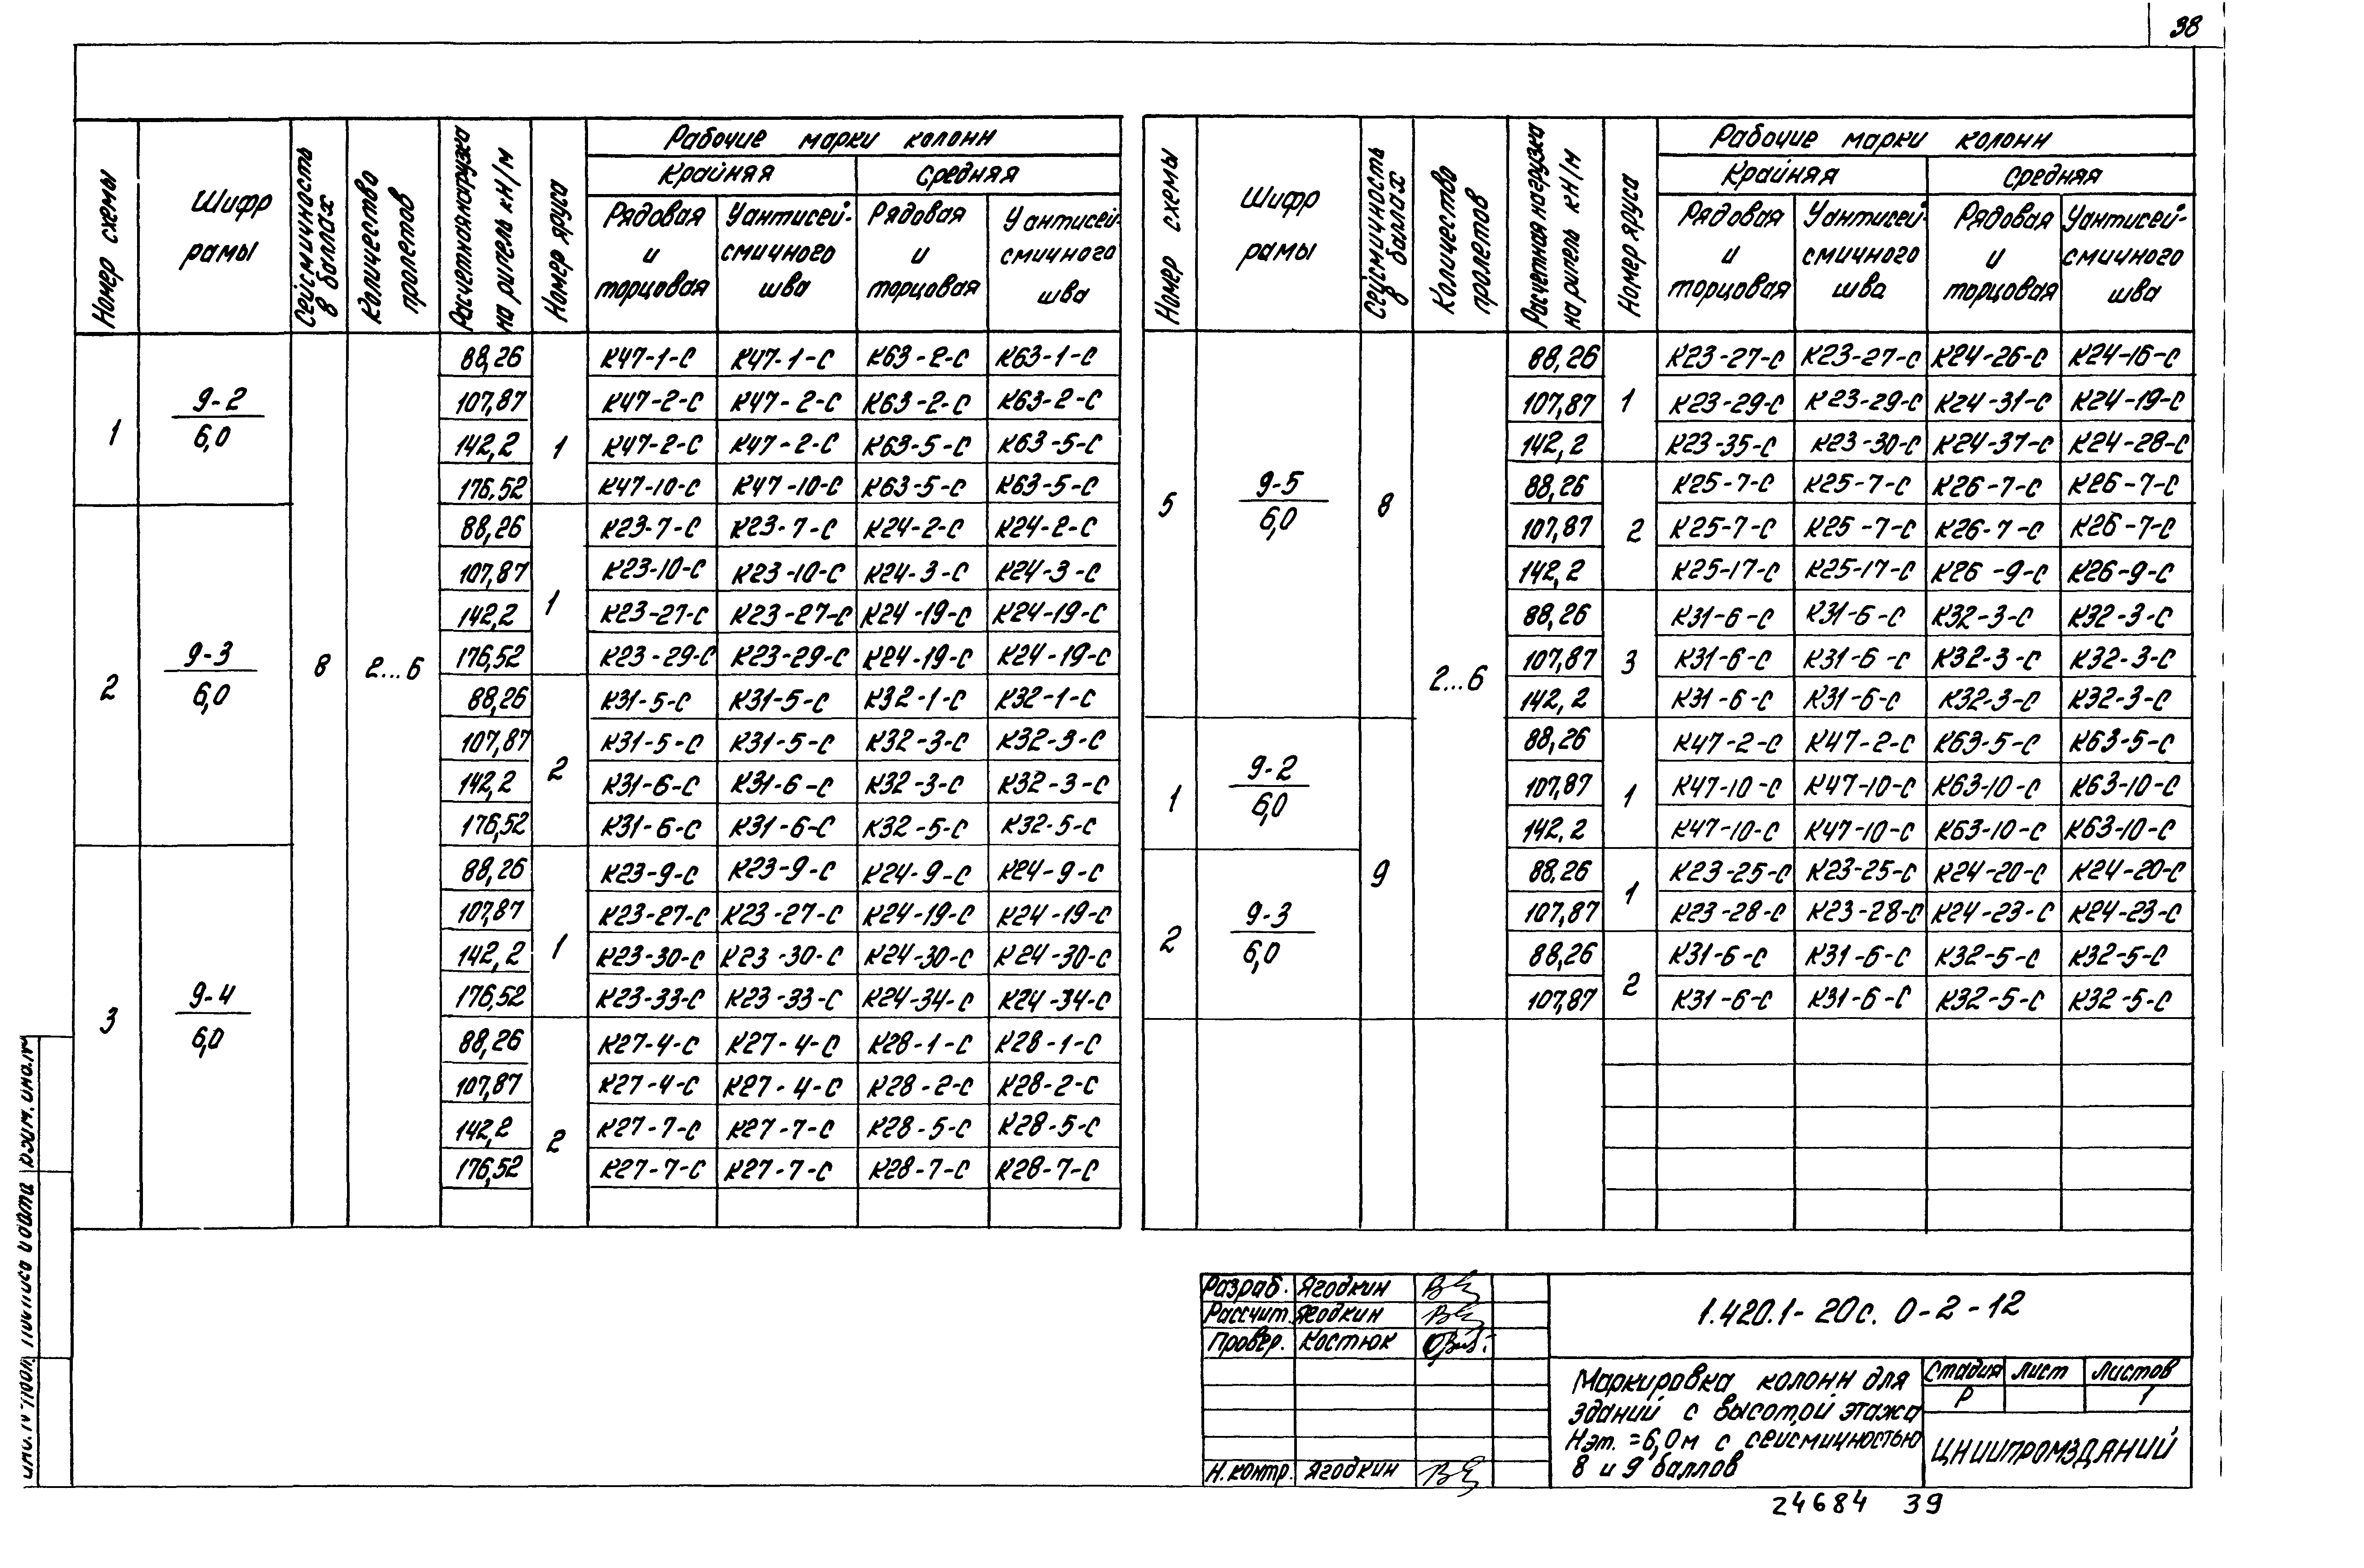 38
Номер схемы | Шифр рамы | Сейсмичность в баллах | Количество пролетов | Расчетная нагрузка на ригель кН/м | Номер яруса | Рабочие марки колонн
Крайняя | Средняя
Рядовая и торцовая | У антисейсмичного шва | Рядовая и торцовая | У антисейсмичного шва
1 | 9-2/6,0 | 8 | 2...6 | 88,26 | 1 | К47-1-С | К47-1-С | К63-2-С | К63-1-С
107,87 | К47-2-С | К47-2-С | К63-2-С | К63-2-С
142,2 | К47-2-С | К47-2-С | К63-5-С | К63-5-С
176,52 | К47-10-С | К47-10-С | К63-5-С | К63-5-С
2 | 9-3/6,0 | 88,26 | 1 | К23-7-С | К23-7-С | К24-2-С | К24-2-С
107,87 | К23-10-С | К23-10-С | К24-3-С | К24-3-С
142,2 | К23-27-С | К23-27-С | К24-19-С | К24-19-С
176,52 | К23-29-С | К23-29-С | К24-19-С | К24-19-С
88,26 | 2 | К31-5-С | К31-5-С | К32-1-С | К32-1-С
107,87 | К31-5-С | К31-5-С | К32-3-С | К32-3-С
142,2 | К31-6-С | К31-6-С | К32-3-С | К32-3-С
176,52 | К31-6-С | К31-6-С | К32-5-С | К32-5-С
3 | 9-4/6,0 | 88,26 | 1 | К23-9-С | К23-9-С | К24-9-С | К24-9-С
107,87 | К23-27-С | К23-27-С | К24-19-С | К24-19-С
142,2 | К23-30-С | К23-30-С | К24-30-С | К24-30-С
176,52 | К23-33-С | К23-33-С | К24-34-С | К24-34-С
88,26 | 2 | К27-4-С | К27-4-С | К28-1-С | К28-1-С
107,87 | К27-4-С | К27-4-С | К28-2-С | К28-2-С
142,2 | К27-7-С | К27-7-С | К28-5-С | К28-5-С
176,52 | К27-7-С | К27-7-С | К28-7-С | К28-7-С
Номер схемы | Шифр рамы | Сейсмичность в баллах | Количество пролетов | Расчетная нагрузка на ригель кН/м | Номер яруса | Рабочие марки колонн
Крайняя | Средняя
Рядовая и торцовая | У антисейсмичного шва | Рядовая и торцовая | У антисейсмичного шва
5 | 9-5/6,0 | 8 | 2...6 | 88,26 | 1 | К23-27-С | К23-27-С | К24-26-С | К24-16-С
107,87 | К23-29-С | К23-29-С | К24-31-С | К24-19-С
142,2 | К23-35-С | К23-30-С | К24-37-С | К24-28-С
88,26 | 2 | К25-7-С | К25-7-С | К26-7-С | К26-7-С
107,87 | К25-7-С | К25-7-С | К26-7-С | К26-7-С
142,2 | К25-17-С | К25-17-С | К26-9-С | К26-9-С
88,26 | 3 | К31-6-С | К31-6-С | К32-3-С | К32-3-С
107,87 | К31-6-С | К31-6-С | К32-3-С | К32-3-С
142,2 | К31-6-С | К31-6-С | К32-3-С | К32-3-С
1 | 9-2/6,0 | 9 | 88,26 | 1 | К47-2-С | К47-2-С | К63-5-С | К63-5-С
107,87 | К47-10-С | К47-10-С | К63-10-С | К63-10-С
142,2 | К47-10-С | К47-10-С | К63-10-С | К63-10-С
2 | 9-3/6,0 | 88,26 | 1 | К23-25-С | К23-25-С | К24-20-С | К24-20-С
107,87 | К23-28-С | К23-28-С | К24-23-С | К24-23-С
88,26 | 2 | К31-6-С | К31-6-С | К32-5-С | К32-5-С
107,87 | К31-6-С | К31-6-С | К32-5-С | К32-5-С
Разраб. Ягодкин
Рассчит. Ягодкин
Провер. Костюк
Н.контр. Ягодкин
1.420.1-20с. 0-2-12
Маркировка колонн для
зданий с высотой этажа
Нэт.=6,0м с сейсмичностью
8 и 9 баллов
Стадия Лист Листов
Р 1
ЦНИИПРОМЗДАНИЙ
24684 39